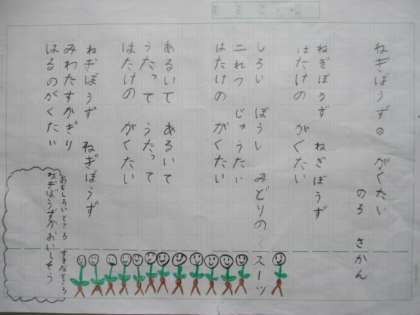 ねぎぼうずの がくたい
のろ さかん
ねぎぼうず ねぎぼうず
はたけの がくたい
しろい ぼうし みどりの スーツ
二れつ じゅうたい
はたけの がくたい
あるいて あるいて
うたって うたって
はたけの がくたい
ねぎぼうず ねぎぼうず
みわたすかぎり
はるのがくたい
おもしろいところ すきなところ
ねぎぼうずがおいしそう